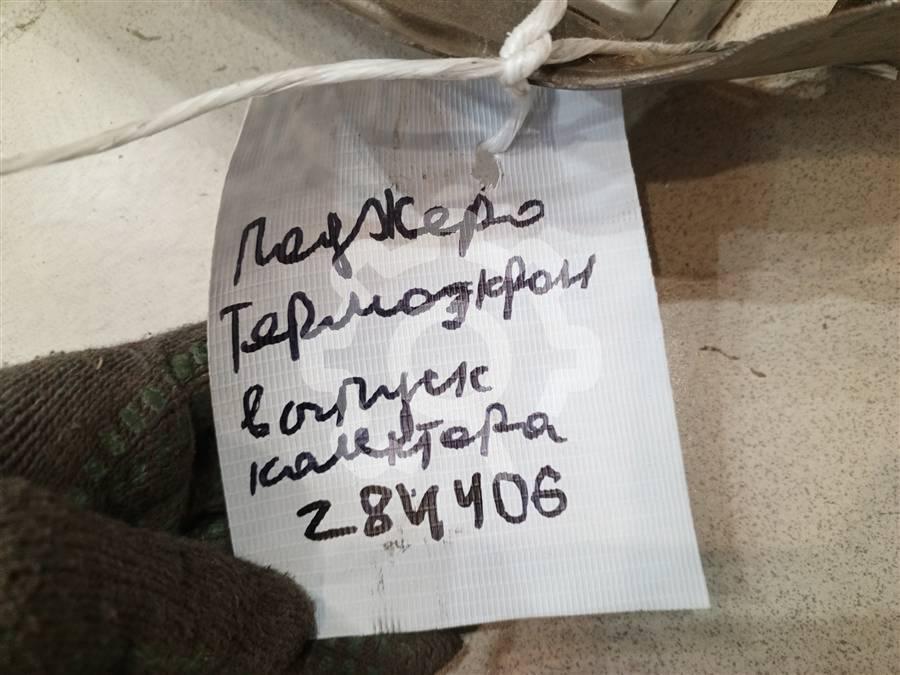 Паджеро
Термоэкран
выпуск
коллектора
284406